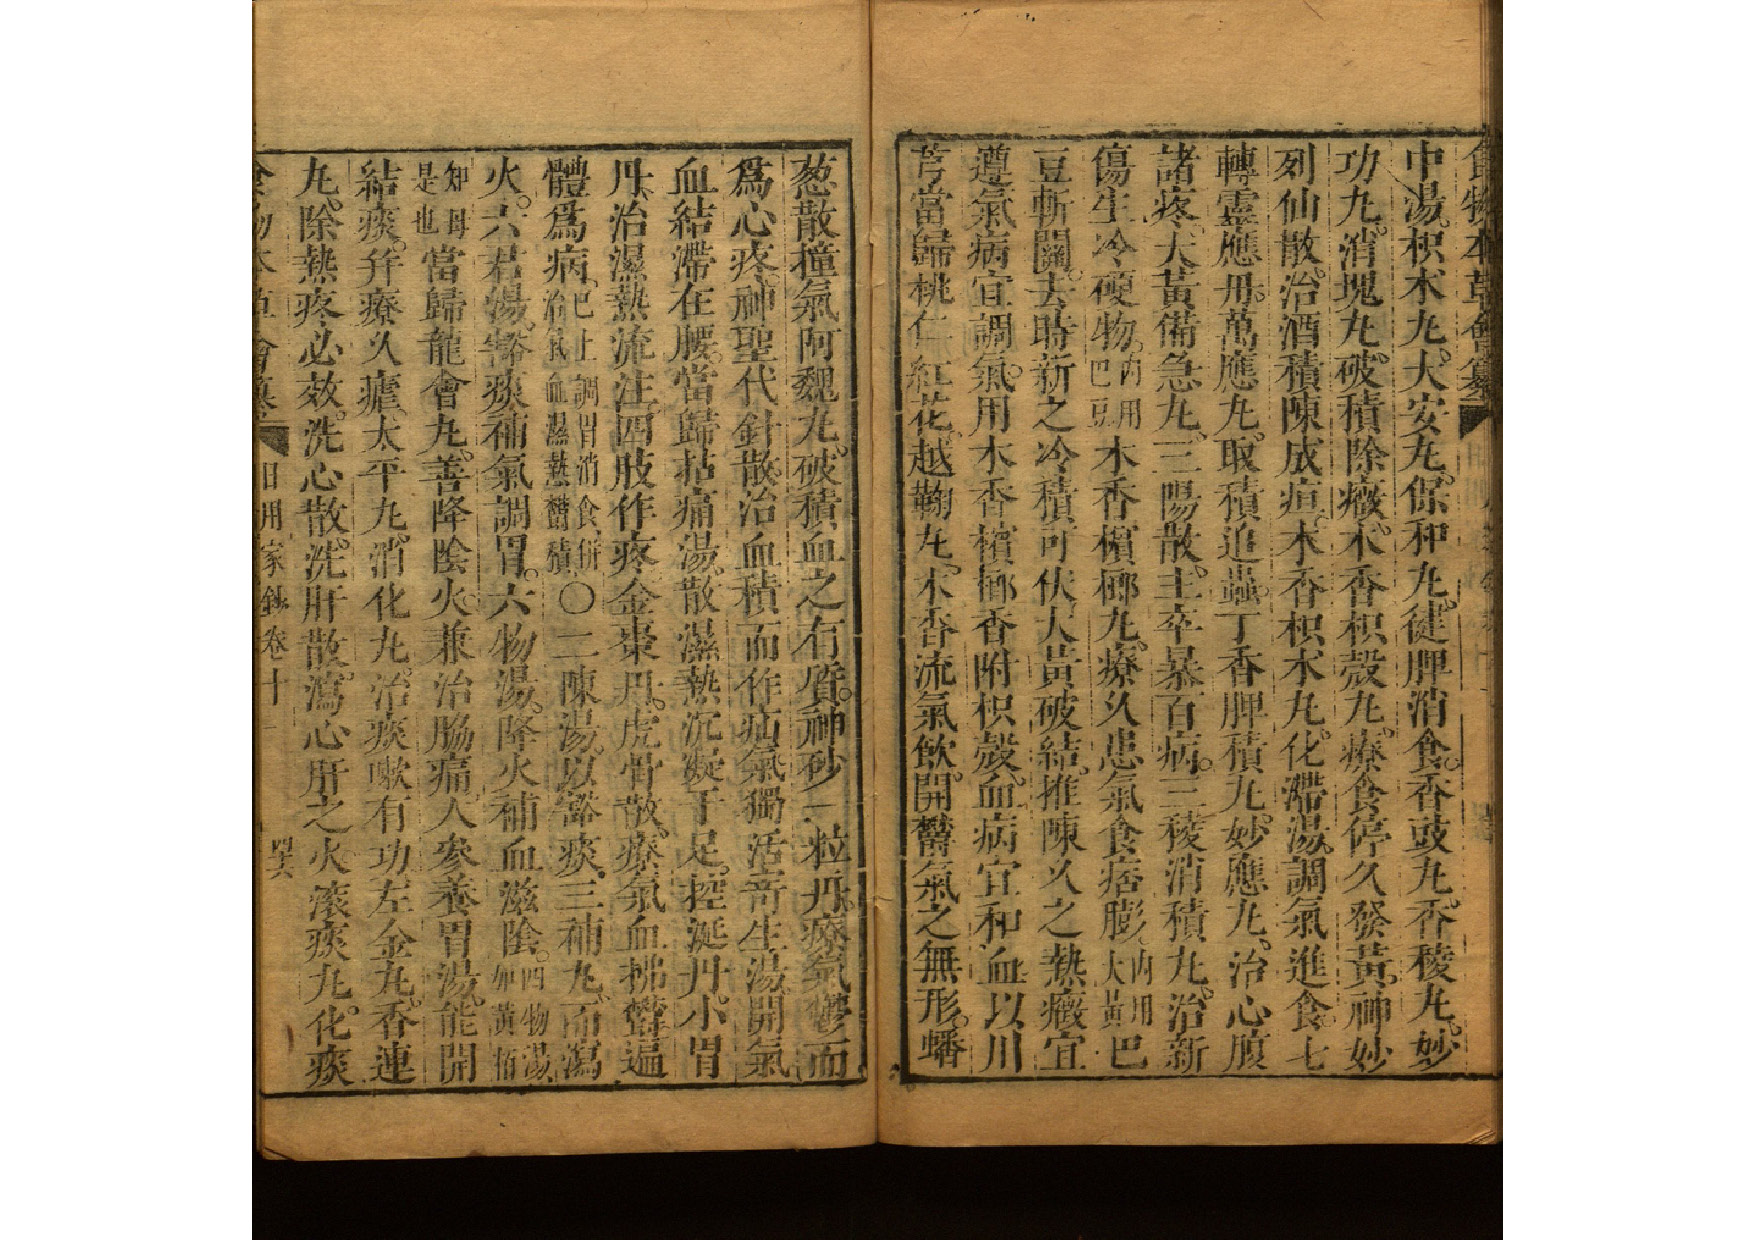 食物本草會纂
中湯。枳朮丸。大安丸。保和丸。健脾消食。香鼓丸。香稜丸。妙
功丸。消塊丸。破積除癥。木香枳殼丸。療食停久發黃。神妙
列仙散。治酒積陳成疸。木香枳朮丸。化滯湯。調氣進食。七
轉靈應丹。萬應丸。取積追蟲。丁香脾積丸。妙應丸。治心腹
諸疼。大黃備急丸。三陽散。主卒暴百病。三稜消積丸。治新
傷生冷硬物。內用巴豆木香檳榔丸。療久患氣食痞膨。內用大黃巴
豆斬關。去時新之冷積可伏。大黃破結。推陳久之熱癥宜
遵。氣病宜調氣。用木香檳榔香附枳殼。血病宜和血。以川
芎當歸桃仁紅花。越鞠丸。木香流氣飲。開鬱氣之無形。蟠
葱散撞氣阿魏丸。破積血之有質。神砂一粒丹。療氣鬱而
爲心疼。神聖代針散。治血積而作疝氣。獨活寄生湯。開氣
血結滯在腰。當歸拈痛湯。散濕熱沉凝于足。控涎丹。小胃
丹。治濕熱流注四肢作疼。金棗丹。虎骨散。療氣血拂鬱遍
體爲病。已上調胃消食併治氣血濕熱鬱積○二陳湯。以豁痰。三補丸。而瀉
火。六君湯。豁痰補氣調胃。六物湯。降火補血滋陰。四物湯加黃栢
知母是也當歸龍會丸。善降陰火。兼治脇痛。人參養胃湯。能開
結痰。幷療久瘧。太平丸。消化丸。治痰嗽有功。左金丸。香連
丸。除熱疼必效。洗心散。洗肝散。瀉心肝之火。滾痰丸。化痰
食物本草會纂 日用家鈔卷十 四六